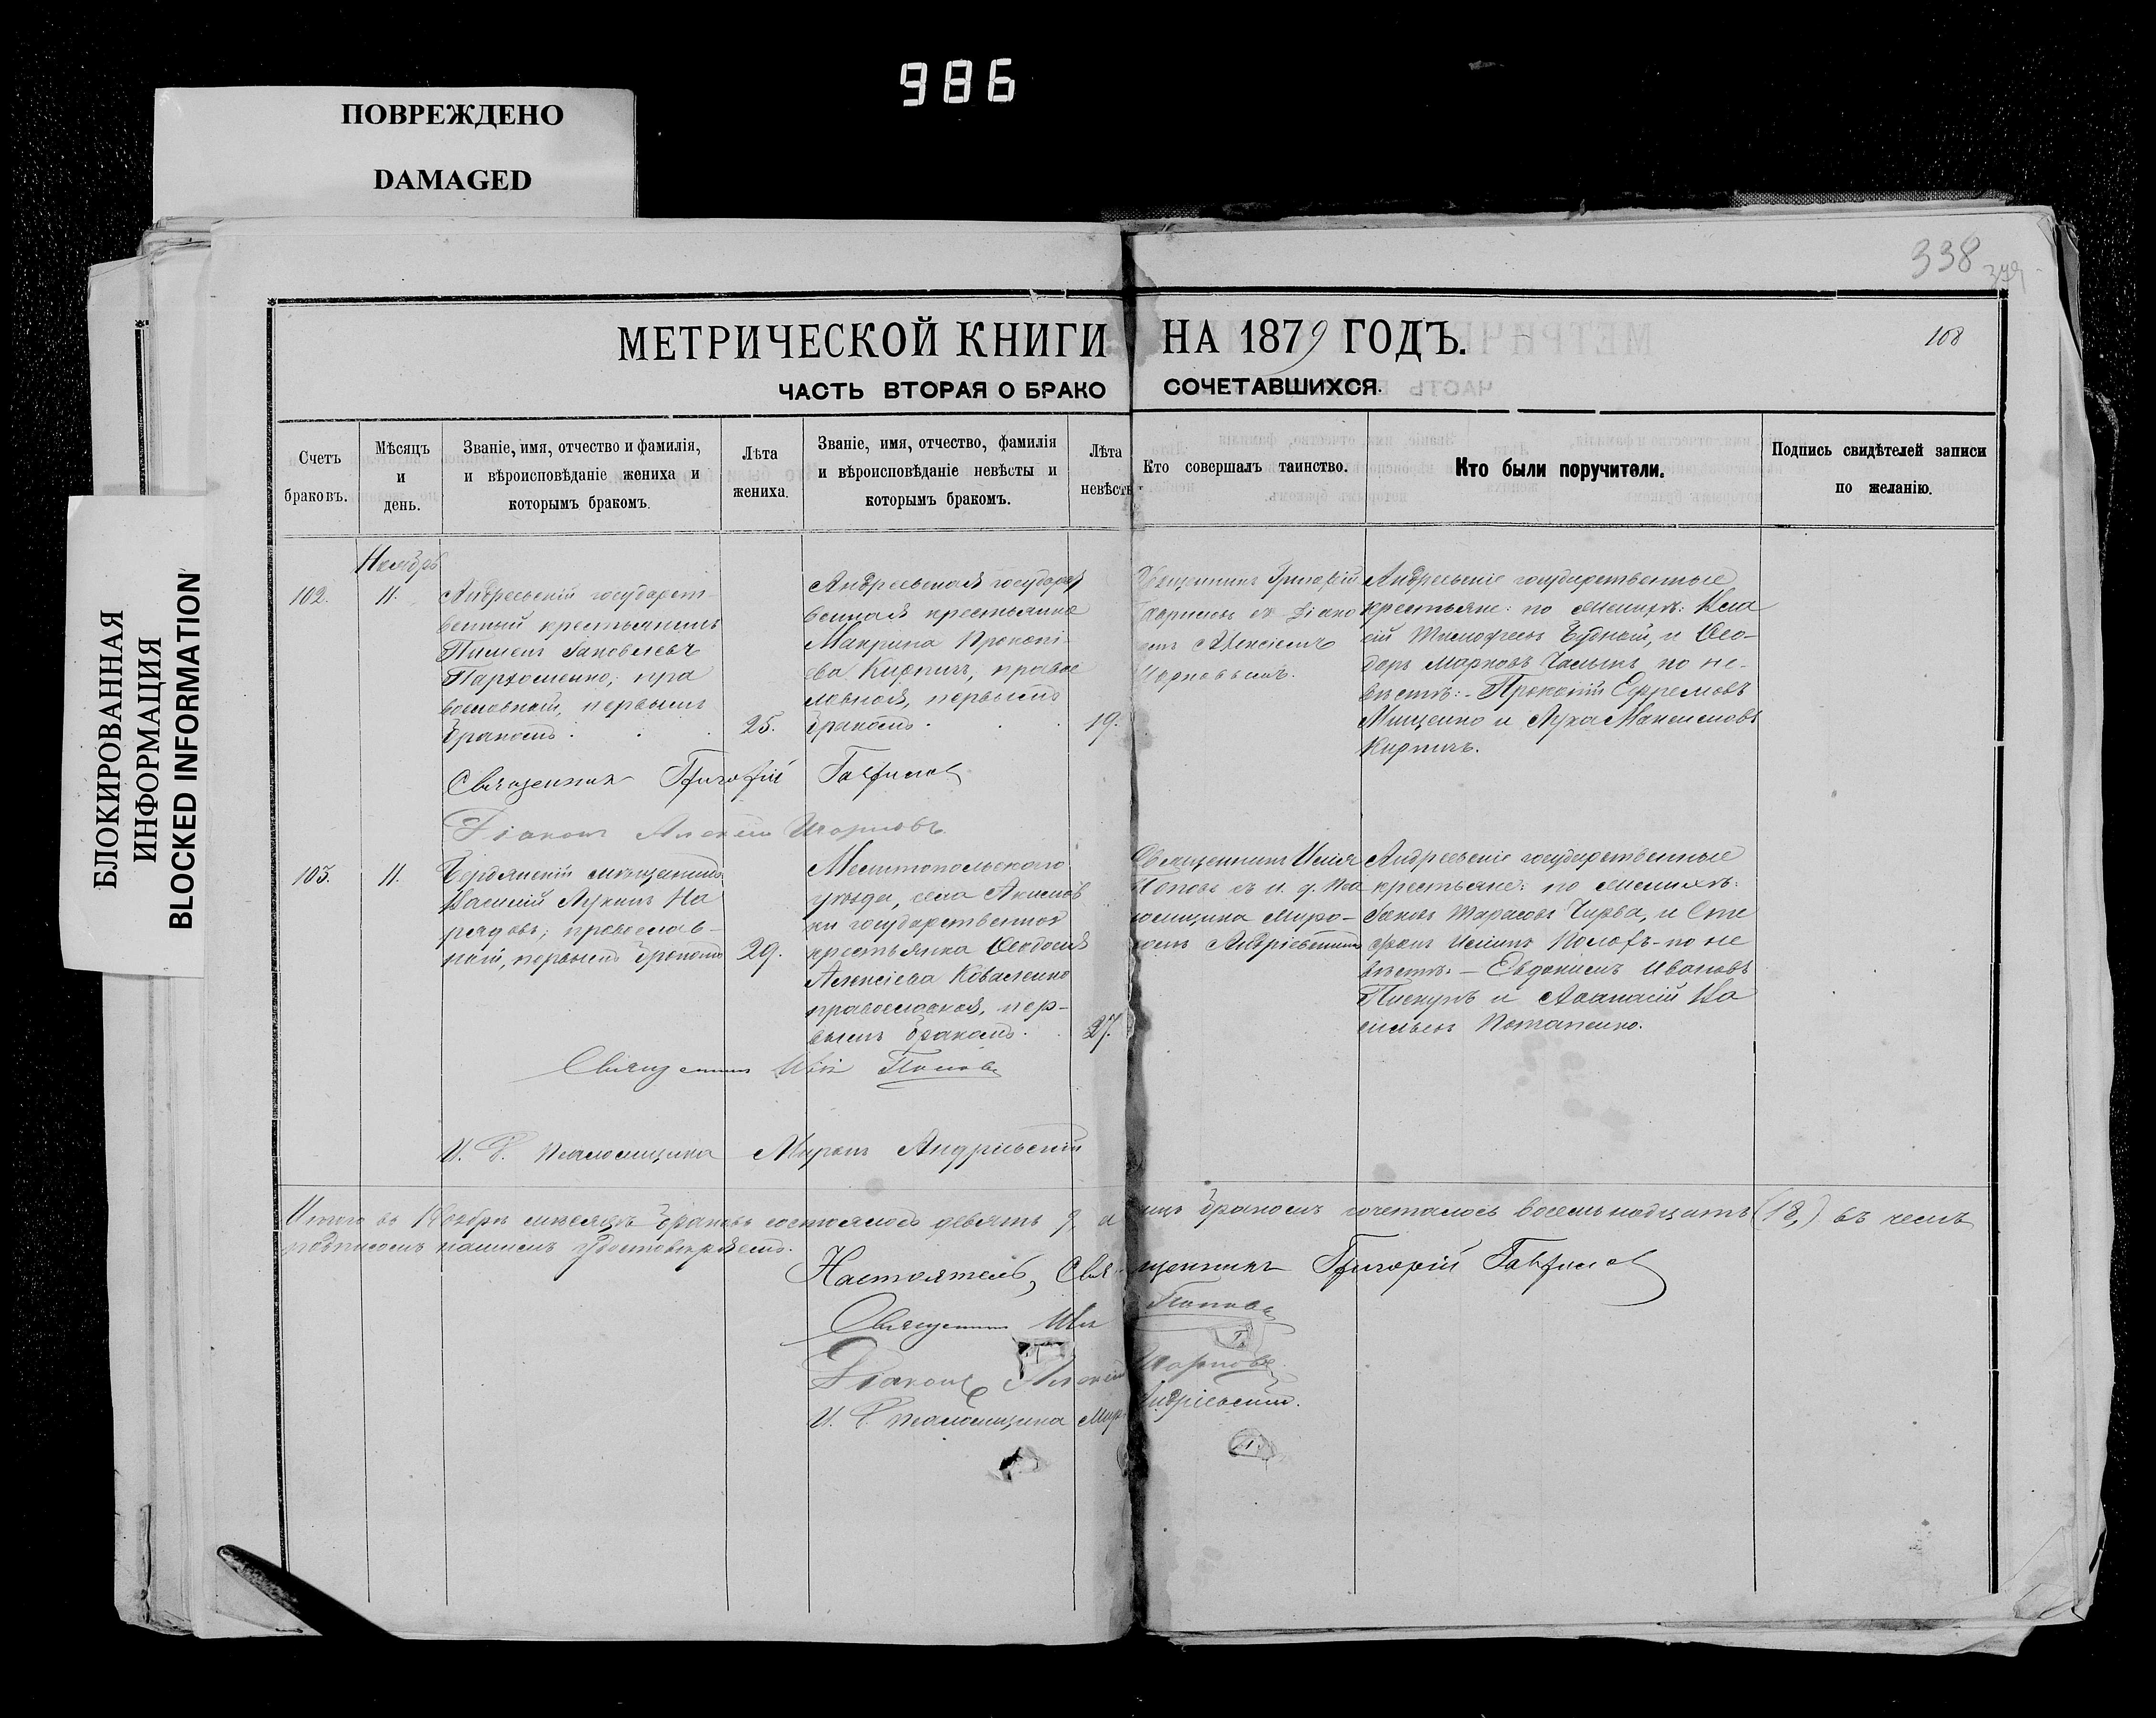 986
ПОВРЕЖДЕНО
DAMAGED
БЛОКИРОВАННАЯ
ИНФОРМАЦИЯ
BLOCKED INFORMATION
338
108
МЕТРИЧЕСКОЙ КНИГИ НА 1879 ГОДЪ.
ЧАСТЬ ВТОРАЯ О БРАКОСОЧЕТАВШИХСЯ.
Счетъ
браковъ.
Мѣсяцъ
и
день.
Званіе, имя, отчество и фамилія,
и вѣроисповѣданіе жениха и
которымъ бракомъ.
Лѣта
жениха.
Званіе, имя, отчество, фамилія
и вѣроисповѣданіе невѣсты и
которымъ бракомъ.
Лѣта
невѣсты
Кто совершалъ таинство.
Кто были поручители.
Подпись свидѣтелей записи
по желанію.
Ноябрь
102.
11.
Андреевскій государст-
венный крестьянинъ
Пименъ Яковлевъ
Пархоменко, пра
вославный, первымъ
бракомъ.
25.
Андреевская государст
венная крестьянка
Макрина Прокопі-
ева Кирпичъ, правос
лавная, первымъ
бракомъ.
19.
Священникъ Григорій
Гавриловъ съ Діако
номъ Алексіемъ
Андреевскіе государственные
крестьяне: по женихѣ:
Тимофеевъ Будный, и Ѳео-
доръ Марковъ по не-
вѣстѣ: - Прокопій Ефремовъ
Мищенко и Лука Максимовъ
Кирпичъ.
Священник Григорій Гаврилов
Діаконъ Алексій
103.
11.
Бердянскій мѣщанинъ
Василій Лукинъ На
рядовъ, православ-
ный, первымъ бракомъ
29.
Мелитопольскаго
уѣзда, села Акимов
ки государственная
крестьянка Ѳеодосія
Алексіева Коваленко
православная, пер-
вымъ бракомъ.
27.
Священникъ Илія
Поповъ съ и. д. Пса
ломщика Миро-
номъ Андріевскимъ
Андреевскіе государственные
крестьяне: по женихѣ:
Яковъ Тарасовъ Чирва, и Сте
фанъ по не
вѣстѣ: - Евдокимъ Ивановъ
Пискунъ и Аѳанасій Ва
сильевъ Потапенко.
Священникъ Илія Поповъ
И. Д. Псаломщика Миронъ Андріевскій
Итого въ Ноябрѣ мѣсяцѣ браковъ состоялось девять 9, а лицъ бракомъ сочеталось восемнадцать (18,) въ чемъ
подписомъ нашимъ удостовѣряемъ.
Настоятель, Священникъ Григорій Гаврилов
Священникъ Илія Поповъ
Діаконъ Алексій
И. Д. Псаломщика Миронъ Андріевскій.